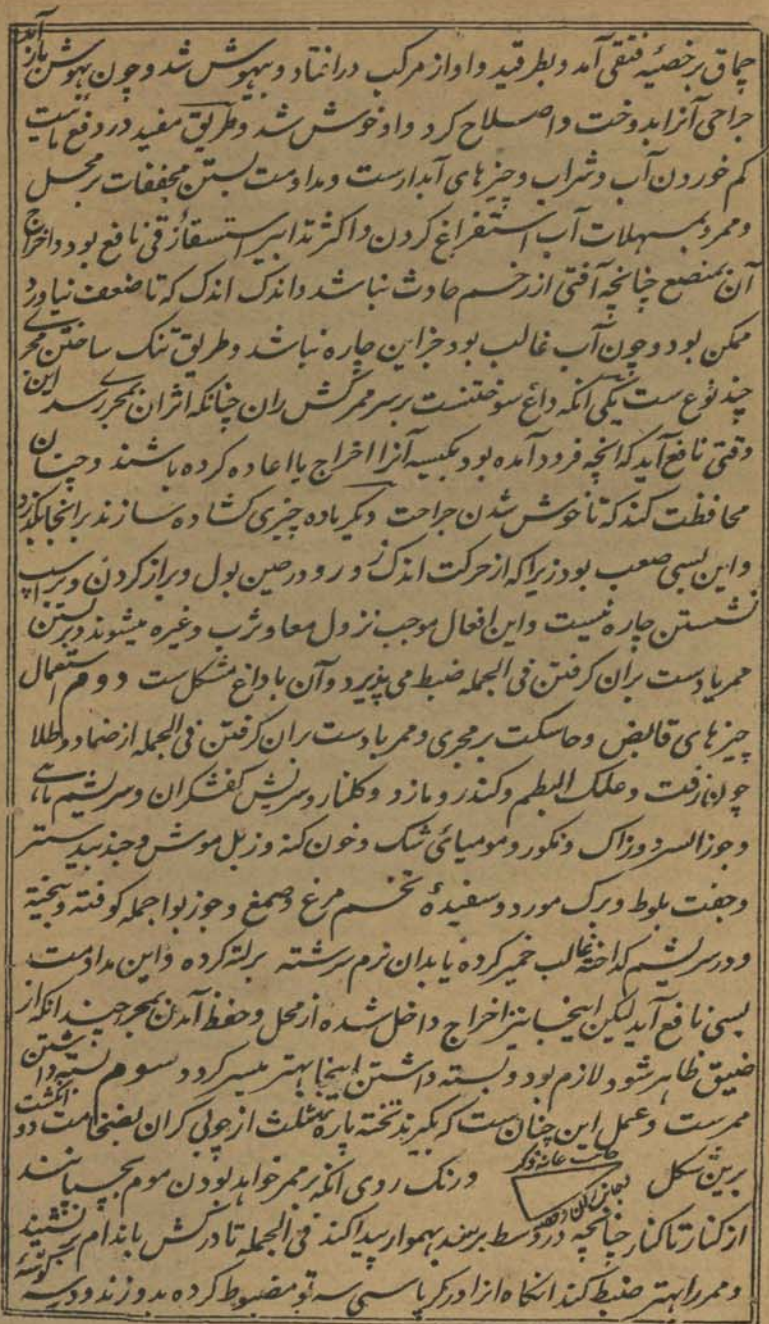 چماق بر خصیه فتقی آمد و بطرقید و او از مرکب در افتاد و بیهوش شد و چون بهوش باز آمد
جراحی آنرا بدوخت و اصلاح کرد و او خوش شد و طریق مفید در دفع مائیت
کم خوردن آب و شراب و چیزهای آبدارست و مداومت بستن مجففات بر محل
و ممر و بمسهلات آب استفراغ کردن و اکثر تدابیر استسقاء زقی نافع بود و اخراج
آن بمبضع چنانچه آفتی از زخم حادث نباشد و اندک اندک که تا ضعف نیاورد
ممکن بود و چون آب غالب بود جز این چاره نباشد و طریق تنک ساختن مجری
چند نوع ست یکی آنکه داغ سوختنست بر سر ممر کش ران چنانکه اثر آن بمجری رسد این
وقتی نافع آید که آنچه فرود آمده بود بکیسه آنرا اخراج یا اعاده کرده باشند و چنان
محافظت کند که تا خوش شدن جراحت دیگر باده چیزی کشاده سازند بر انجا نگذرد
و این بسی صعب بود زیرا که از حرکت اندک و رو در حین بول و براز کردن و بر اسپ
نشستن چاره نیست و این افعال موجب نزول معا و ثرب و غیره میشوند و بر بستن
ممر یا دست بران گرفتن فی الجمله ضبط می پذیرد و آن با داغ مشکل ست دوم استعمال
چیزهای قابض و حاسکت بر مجری و ممر یا دست بران گرفتن فی الجمله از ضماد و طلا
چون زفت و علک البطم و کندر و مازو و گلنار و سریش کفشگران و سریشم ماهی
و جوز السرو و زاک و نکور و مومیائی شک و خون کنه و زبل موش و جندبیدستر
و جفت بلوط و برک مورد و سفیدۀ تخم مرغ و صمغ و جوزبوا جمله کوفته و بیخته
و در سریشم گداخته غالب خمیر کرده یا بدان نرم سرشته بر لته کرده و این مداومت
بسی نافع آید لیکن اینجا نیز اخراج داخل شده از محل و حفظ آمدن بمجری چندانکه اثر
ضیق ظاهر شود لازم بود و بسته داشتن اینجا بهتر میسر گردد سوم بسته داشتن
ممرست و عمل این چنان ست که بگیرند تخته پاره مثلث از چوبی گران بضخامت دو انگشت
برین شکل
جانب عانه و ذکر
و رنک روی آنکه بر ممر خواهد بودن موم بچسپانند
از کنار تا کنار چنانچه در وسط برسفد بهموار پیدا کند فی الجمله تا در کش باندام بر نشیند
و ممر را بهتر ضبط کند آنگاه آنرا در کرپاسی سه تو مضبوط کرده بدوزند و در سه گوشۀ